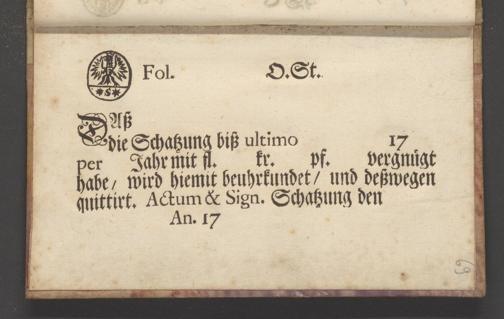 Fol. O.St.
Daß
die Schatzung biß ultimo 17
per Jahr mit fl. kr. pf. vergnügt
habe / wird hiemit beuhrkundet / und deßwegen
quittirt. Actum & Sign. Schatzung den
An. 17
69